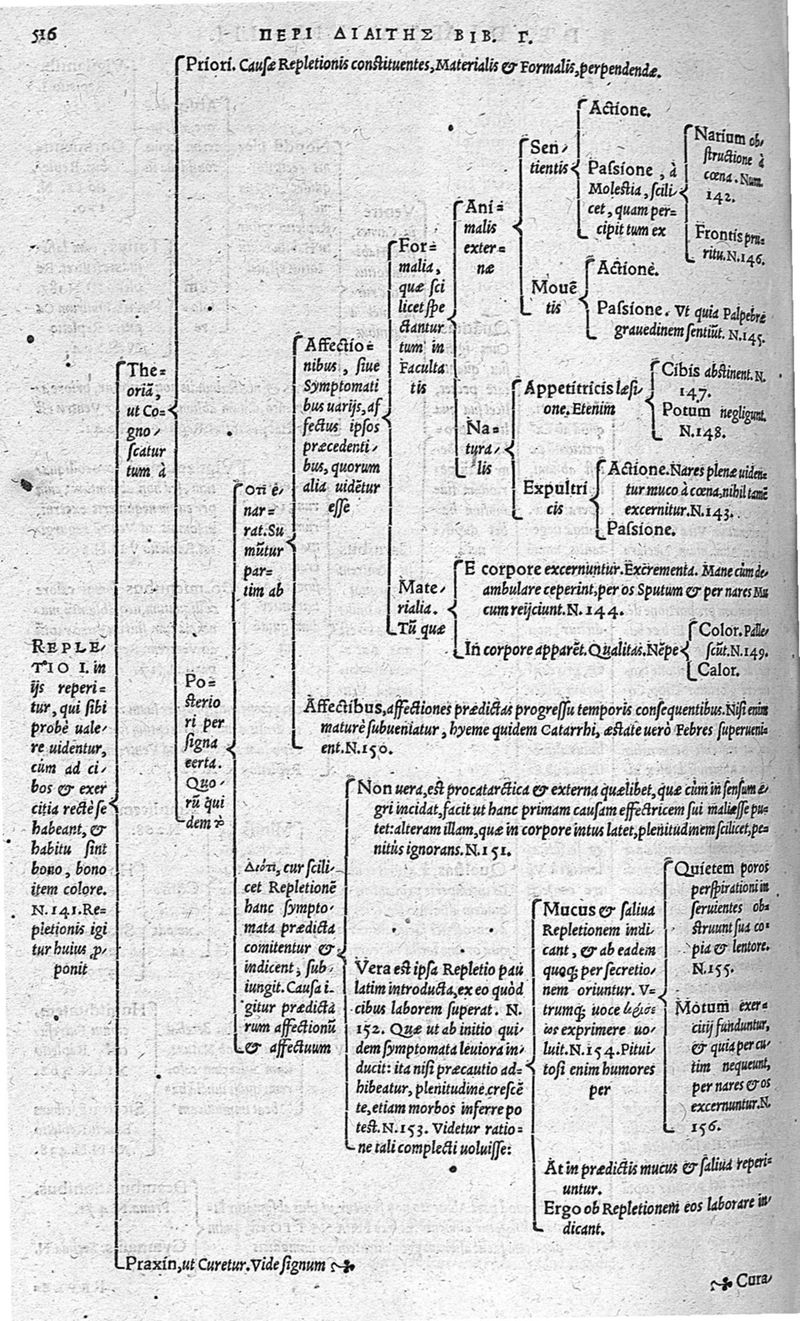 516
ΠΕΡΙ ΔΙΑΙΤΗΣ ΒΙΒ. Γ.
REPLE=
TIO I. in
ijs reperi=
tur, qui sibi
probè uale=
re uidentur,
cùm ad ci=
bos & exer
citia rectè se
habeant, &
habitu sint
bono, bono
item colore.
N.141. Re=
pletionis igi
tur huius ꝓ=
ponit
The=
oriã,
ut Co=
gno=
scatur
tum à
Priori. Causæ Repletionis constituentes, Materialis & Formalis, perpendendæ.
Po=
sterio
ri per
signa
certa.
Quo=
rũ qui
dem
Ὅτι ê=
nar=
rat. Su
mũtur
par=
tim ab
Affectio=
nibus, siue
Symptomati
bus uarijs, af
fectus ipsos
præcedenti=
bus, quorum
alia uidẽtur
esse
For=
malia,
quæ sci
licet spe
ctantur
tum in
Faculta
tis
Ani=
malis
exter=
næ
Sen=
tientis
Actione.
Passione, à
Molestia, scili
cet, quam per=
cipit tum ex
Narium ob=
structione à
cœna. Num.
142.
Frontis pru=
ritu. N.146.
Mouẽ
tis
Actione.
Passione. Vt quia Palpebræ
grauedinem sentiũt. N.145.
Na=
tura=
lis
Appetitricis læsi=
one. Etenim
Cibis abstinent. N.
147.
Potum negligunt.
N.148.
Expultri
cis
Actione. Nares plenæ uiden=
tur muco à cœna, nihil tamẽ
excernitur. N.143.
Passione.
Mate=
rialia.
Tũ quæ
E corpore excernuntur. Excrementa. Mane cùm de=
ambulare ceperint, per os Sputum & per nares Mu
cum reijciunt. N. 144.
In corpore apparẽt. Qualitas. Nẽpe
Color. Palle=
scũt. N.149.
Calor.
Affectibus, affectiones prædictas progressu temporis consequentibus. Nisi enim
maturè subueniatur, hyeme quidem Catarrhi, æstate uerò Febres superueni=
ent. N.150.
Διότι, cur scili=
cet Repletionẽ
hanc sympto=
mata prædicta
comitentur &
indicent, sub=
iungit. Causa i=
gitur prædicta
rum affectionũ
& affectuum
Non uera, est procatarctica & externa quælibet, quæ cùm in sensum æ=
gri incidat, facit ut hanc primam causam effectricem sui mali esse pu=
tet: alteram illam, quæ in corpore intus latet, plenitudinem scilicet, pe=
nitùs ignorans. N.151.
Vera est ipsa Repletio pau
latim introducta, ex eo quòd
cibus laborem superat. N.
152. Quæ ut ab initio qui=
dem symptomata leuiora in=
ducit: ita nisi præcautio ad=
hibeatur, plenitudine crescẽ
te, etiam morbos inferre po
test. N.153. Videtur ratio=
ne tali complecti uoluisse:
Mucus & saliua
Repletionem indi
cant, & ab eadem
quoq; per secretio=
nem oriuntur. V=
trumq; uoce
exprimere uo=
luit. N.154. Pitui=
tosi enim humores
per
Quietem poros
perspirationi in
seruientes ob=
struunt sua co=
pia & lentore.
N.155.
Motum exer=
citij funduntur,
& quia per cu=
tim nequeunt,
per nares & os
excernuntur. N.
156.
At in prædictis mucus & saliua reperi=
untur.
Ergo ob Repletionem eos laborare in=
dicant.
Praxin, ut Curetur. Vide signum ❧
❧ Cura=